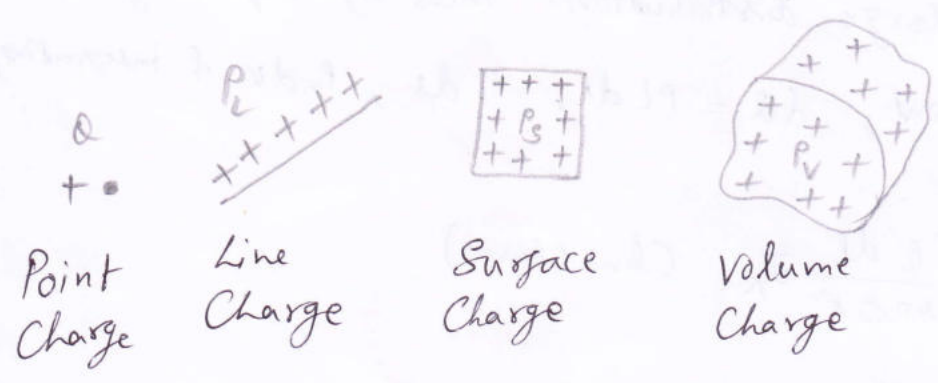 Q
+
ρL
+ + + + +
+ + +
+ ρS +
+ + +
+ +
+ +
+ + +
+ ρV +
+ + +
Point
Charge
Line
Charge
Surface
Charge
Volume
Charge